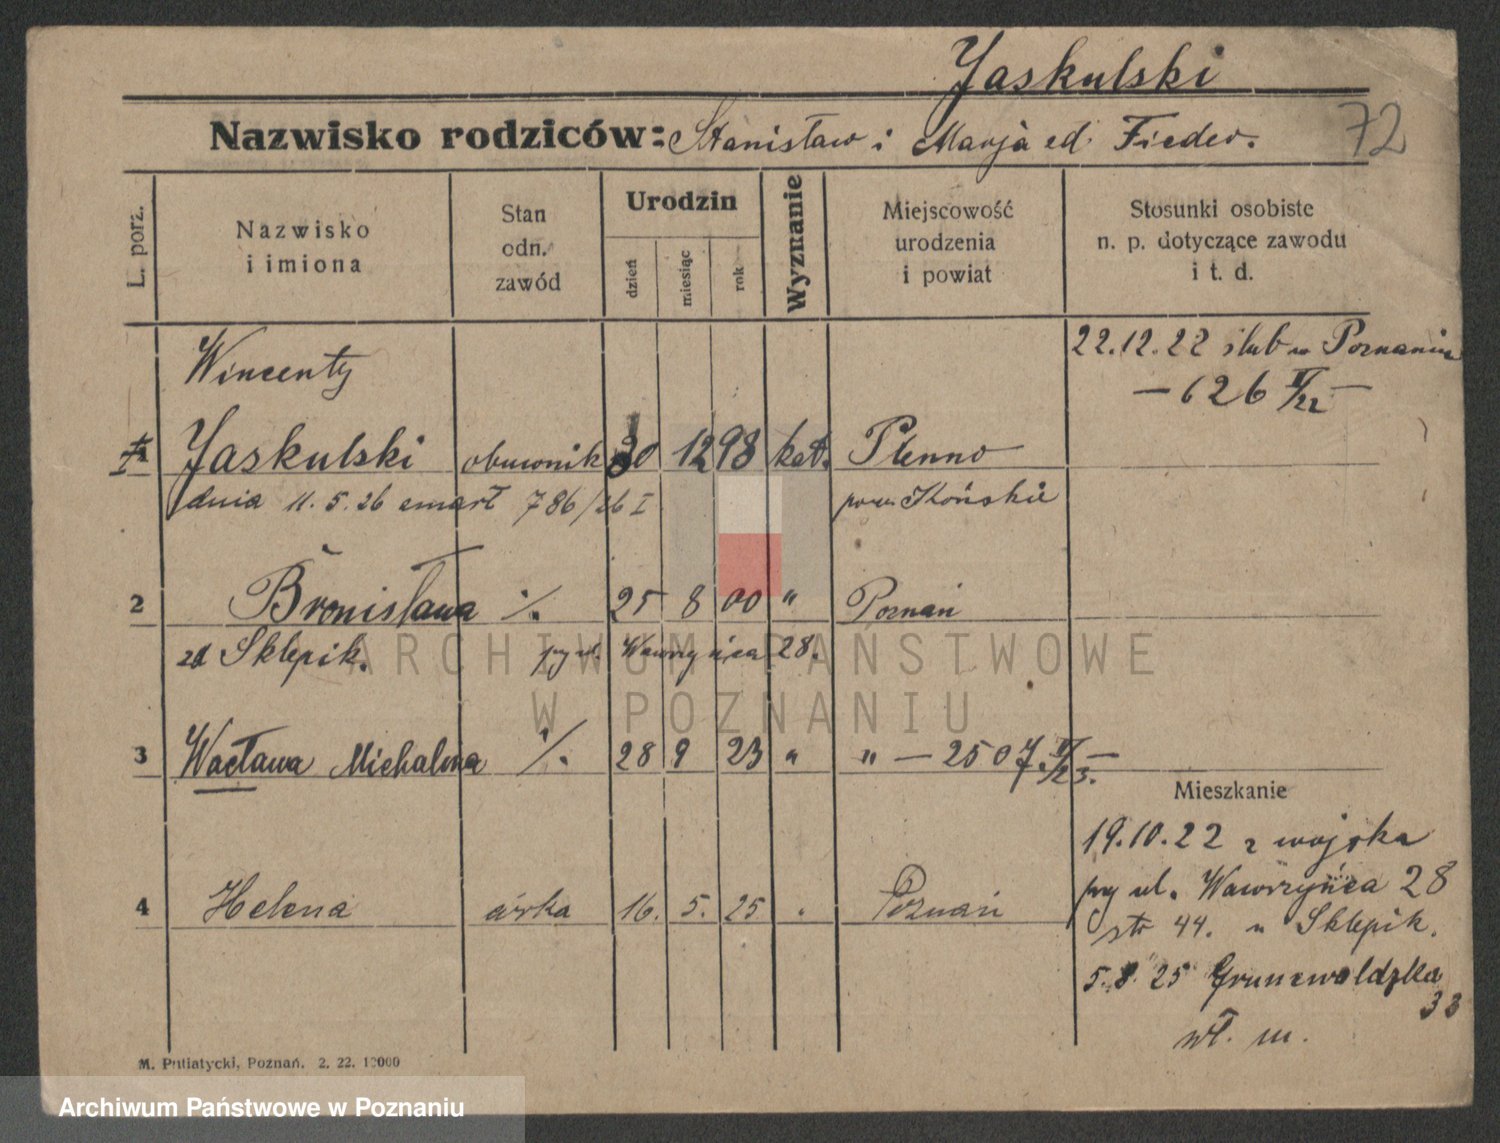 Jaskulski
Nazwisko rodziców: Stanisław i Marja zd. Fieder.
72
L. porz.
Nazwisko i imiona
Stan odn. zawód
Urodzin
dzień
miesiąc
rok
Wyznanie
Miejscowość urodzenia i powiat
Stosunki osobiste n. p. dotyczące zawodu i t. d.
Wincenty
22.12.22 ślub w Poznaniu
— 626 II/22 —
Jaskulski obuwnik 30 12 98 kat. Plenno
dnia 11. 5. 26 zmarł 786/26 I
pow. Końskie
2 Bronisława ·/. 25 8 00 " Poznań
zd Sklepik. przy ul. Wawrzyńca 28.
ARCHIWUM PAŃSTWOWE
W POZNANIU
3 Wacława Michalina ·/. 28 9 23 " " — 2507 II/23. —
Mieszkanie
19.10.22 z wojska
przy ul. Wawrzyńca 28
4 Helena córka 16. 5. 25 " Poznań
str 44. u Sklepik.
5.8.25 Grunwaldzka
33
wł. m.
M. Putiatycki, Poznań. 2. 22. 10000
Archiwum Państwowe w Poznaniu